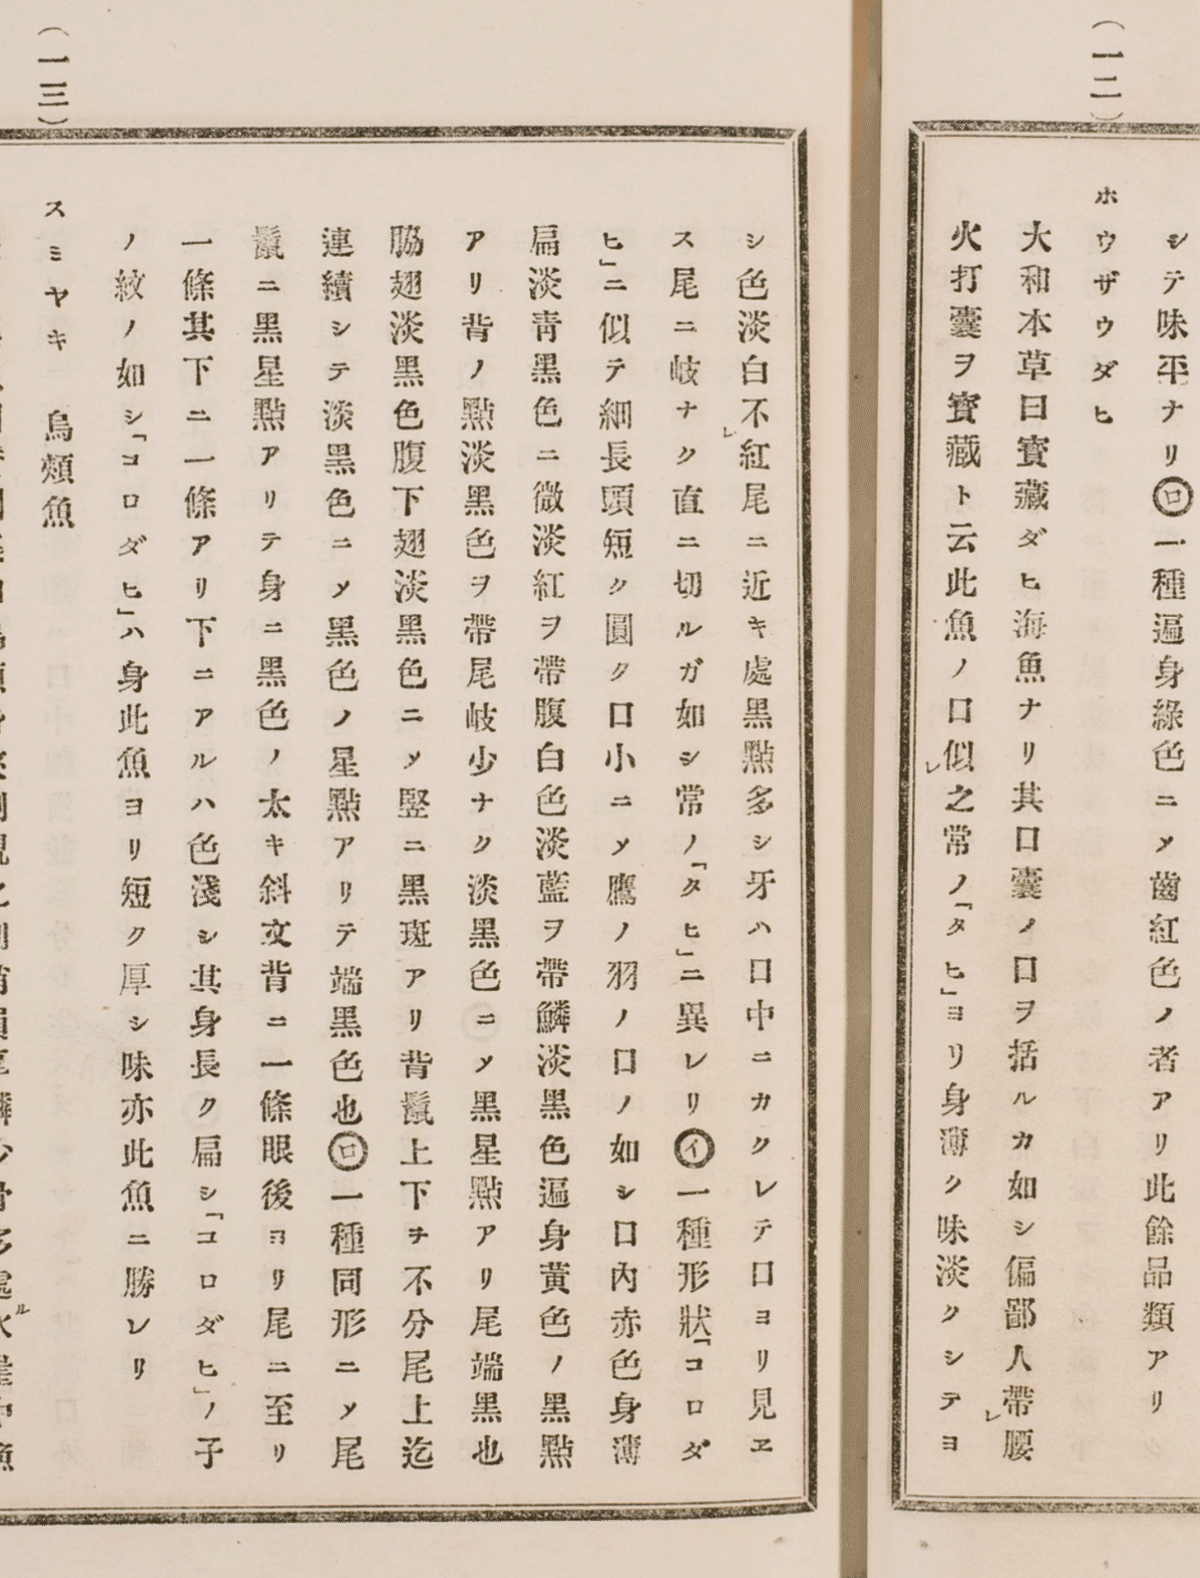 (一二)
シテ味平ナリ㋺一種遍身綠色ニメ齒紅色ノ者アリ此餘品類アリ
ホウザウダヒ
大和本草曰寳藏ダヒ海魚ナリ其口囊ノ口ヲ括ルカ如シ偏鄙人帶レ腰
火打囊ヲ寳藏ト云此魚ノ口似レ之常ノ「タヒ」ヨリ身薄ク味淡クシテヨ
(一三)
シ色淡白不レ紅尾ニ近キ處黒點多シ牙ハ口中ニカクレテ口ヨリ見ヱ
ス尾ニ岐ナク直ニ切ルガ如シ常ノ「タヒ」ニ異レリ㋑一種形狀「コロダ
ヒ」ニ似テ細長頭短ク圓ク口小ニメ鷹ノ羽ノ口ノ如シ口內赤色身薄
扁淡靑黒色ニ微淡紅ヲ帶腹白色淡藍ヲ帶鱗淡黒色遍身黃色ノ黒點
アリ背ノ點淡黒色ヲ帶尾岐少ナク淡黒色ニメ黒星點アリ尾端黒也
脇翅淡黒色腹下翅淡黒色ニメ竪ニ黒斑アリ背鬣上下チ不分尾上迄
連續シテ淡黒色ニメ黒色ノ星點アリテ端黒色也㋺一種同形ニメ尾
鬣ニ黒星點アリテ身ニ黒色ノ太キ斜文背ニ一條眼後ヨリ尾ニ至リ
一條其下ニ一條アリ下ニアルハ色淺シ其身長ク扁シ「コロダヒ」ノ子
ノ紋ノ如シ「コロダヒ」ハ身此魚ヨリ短ク厚シ味亦此魚ニ勝レリ
スミヤキ 烏頰魚